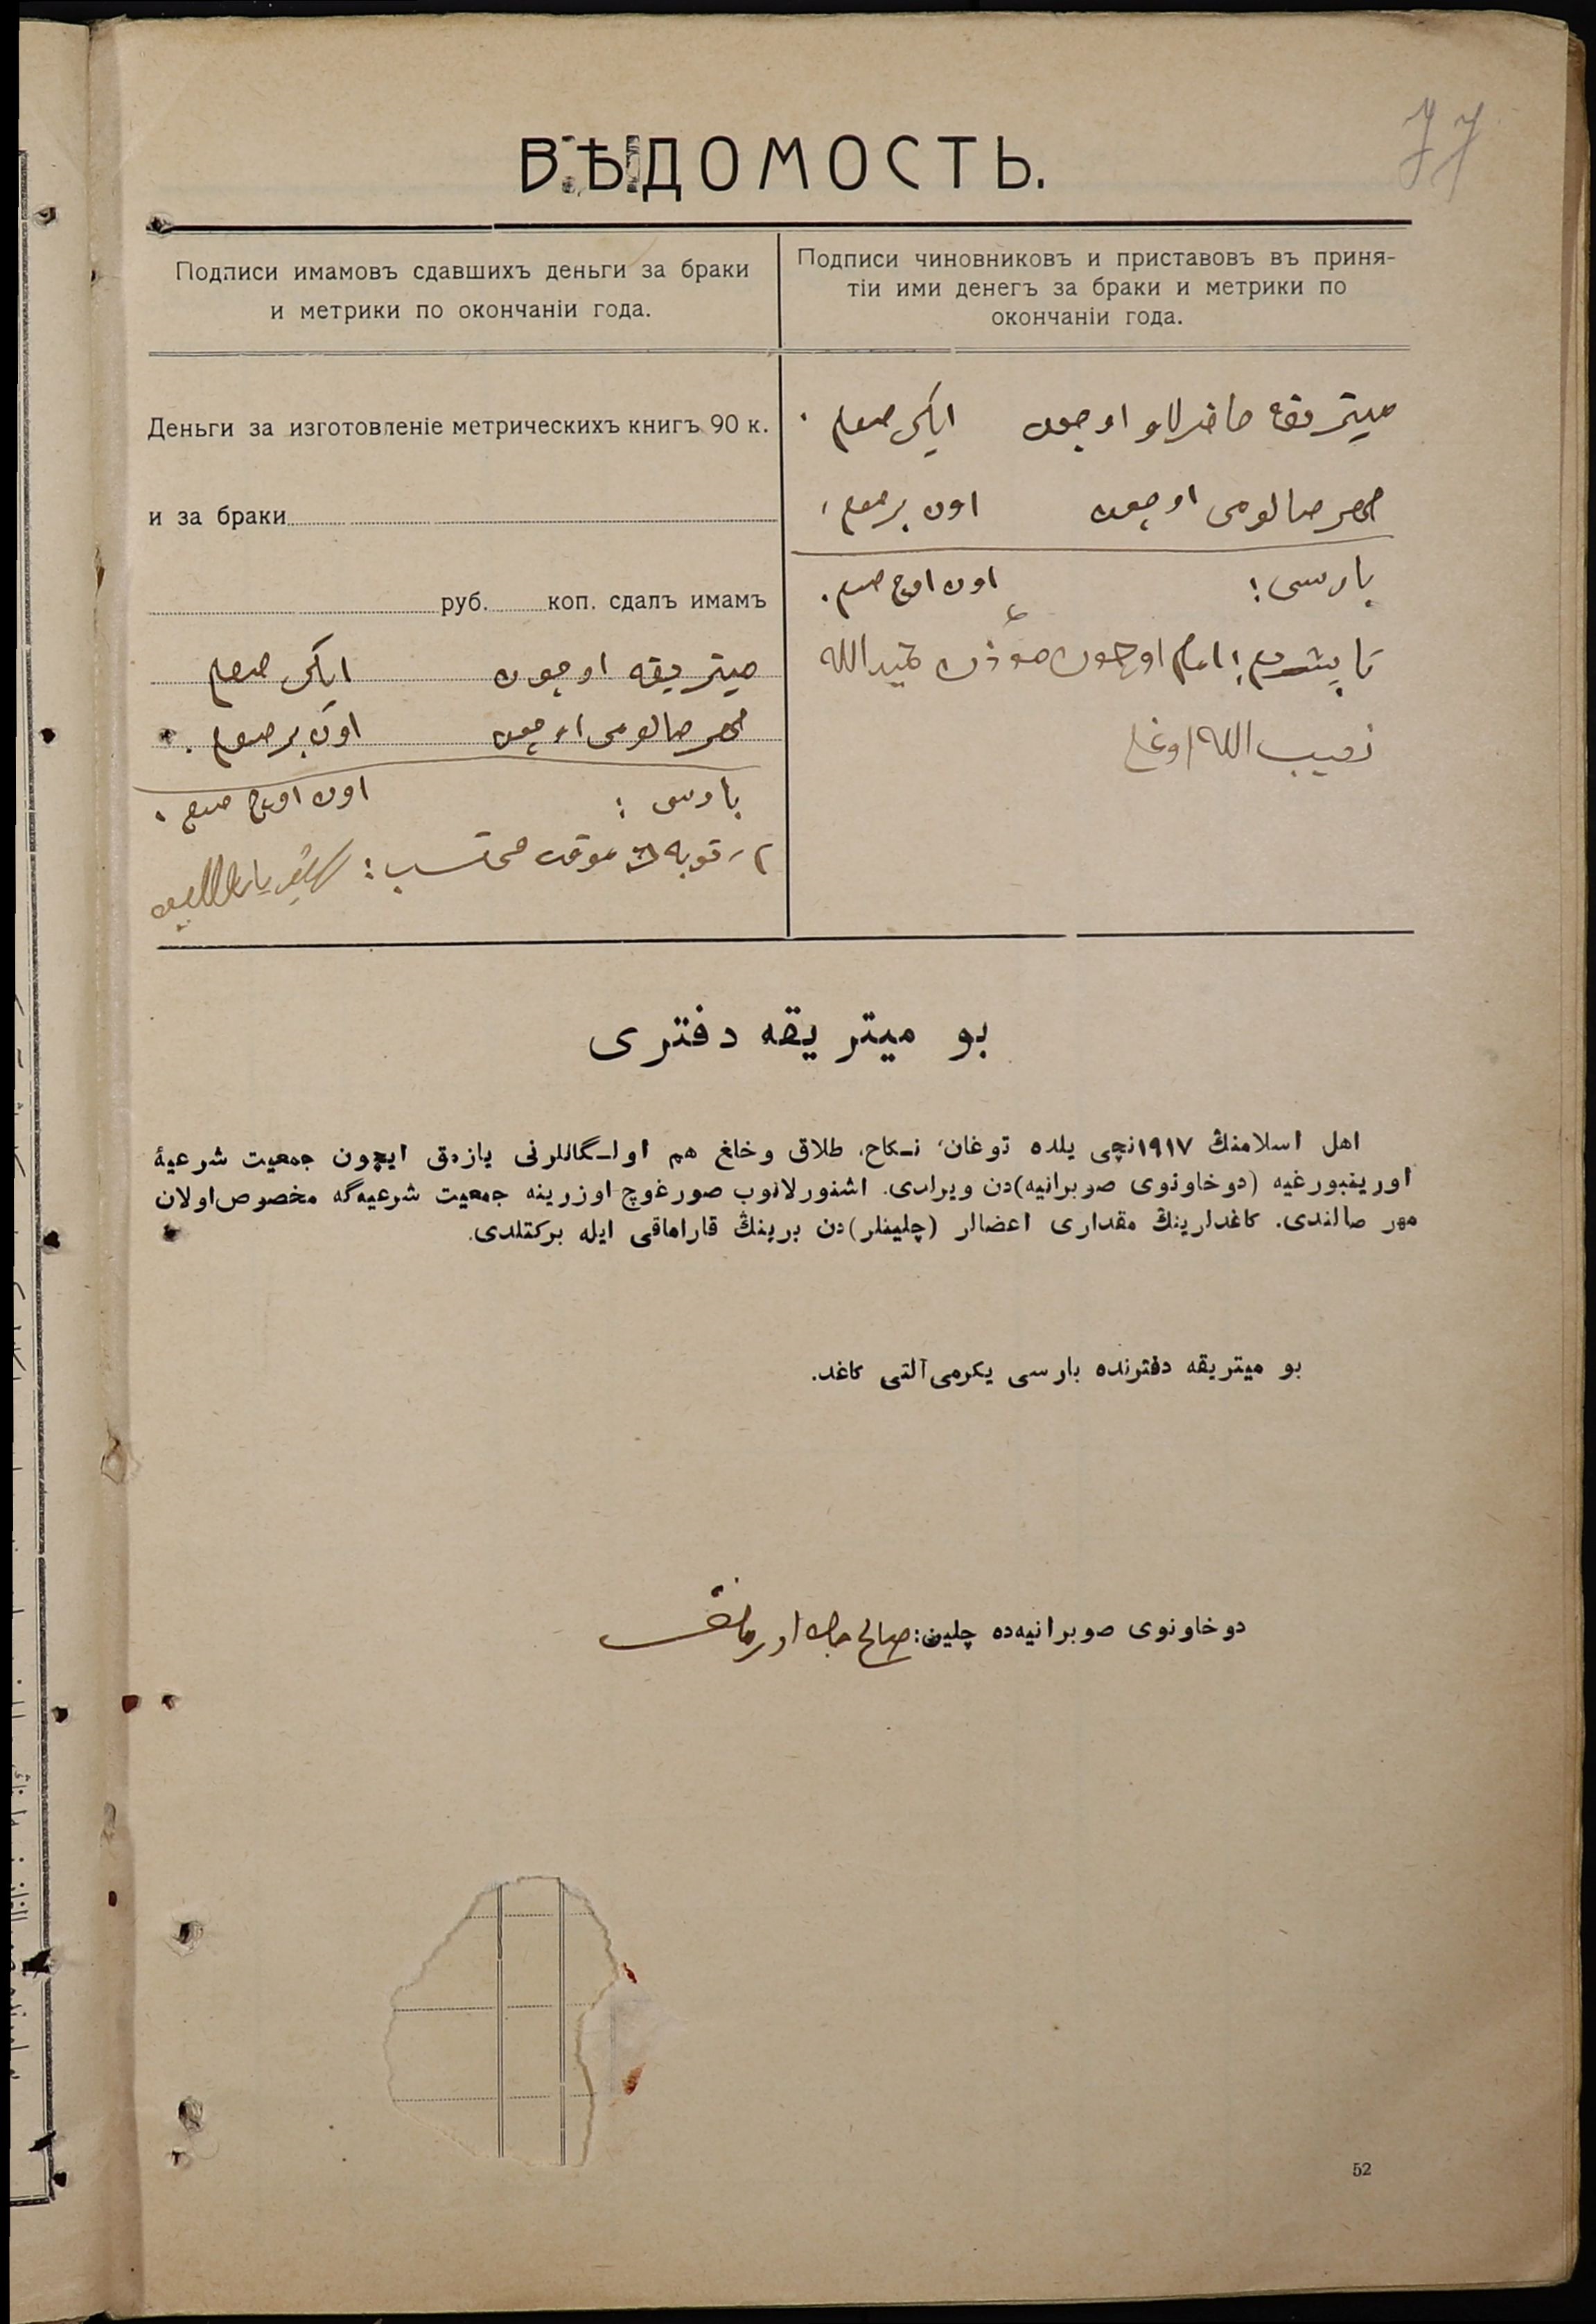 77
ВѢДОМОСТЬ.
Подписи имамовъ сдавшихъ деньги за браки
и метрики по окончаніи года.
Подписи чиновниковъ и приставовъ въ приня-
тіи ими денегъ за браки и метрики по
окончаніи года.
Деньги за изготовленіе метрическихъ книгъ 90 к.
и за браки
руб. коп. сдалъ имамъ
میتریقه اوچون ایکی صوم
مهر صالومی اوچون اون بر صوم.
بارسی: اون اوچ صوم.
موقت محتسب:
میتریقه حاضرلاو اوچون ایکی صوم.
مهر صالومی اوچون اون بر صوم،
بارسی: اون اوچ صوم.
تاپشردم: امام اوچون مؤذن
اوغلی
بو میتریقه دفتری
اهل اسلامنڭ ۱۹۱۷نچی یلده توغان، نـكاح، طلاق وخلغ هم اولـگانلرنی یازمق ایچون جمعیت شرعیهٔ
اورینبورغیه (دوخاونوی صوبرانیه)دن ویرلدی. اشنورلانوب صورغوچ اوزرینه جمعیت شرعیه‌گه مخصوص اولان
مهر صالندی. کاغدلرینڭ مقداری اعضالر (چلینلر)دن برینڭ قاراماقی ایله برکتلدی.
بو میتریقه دفترنده بارسی یکرمی آلتی کاغد.
دوخاونوی صوبرانیه‌ده چلین: صالح جان اورمانف
52